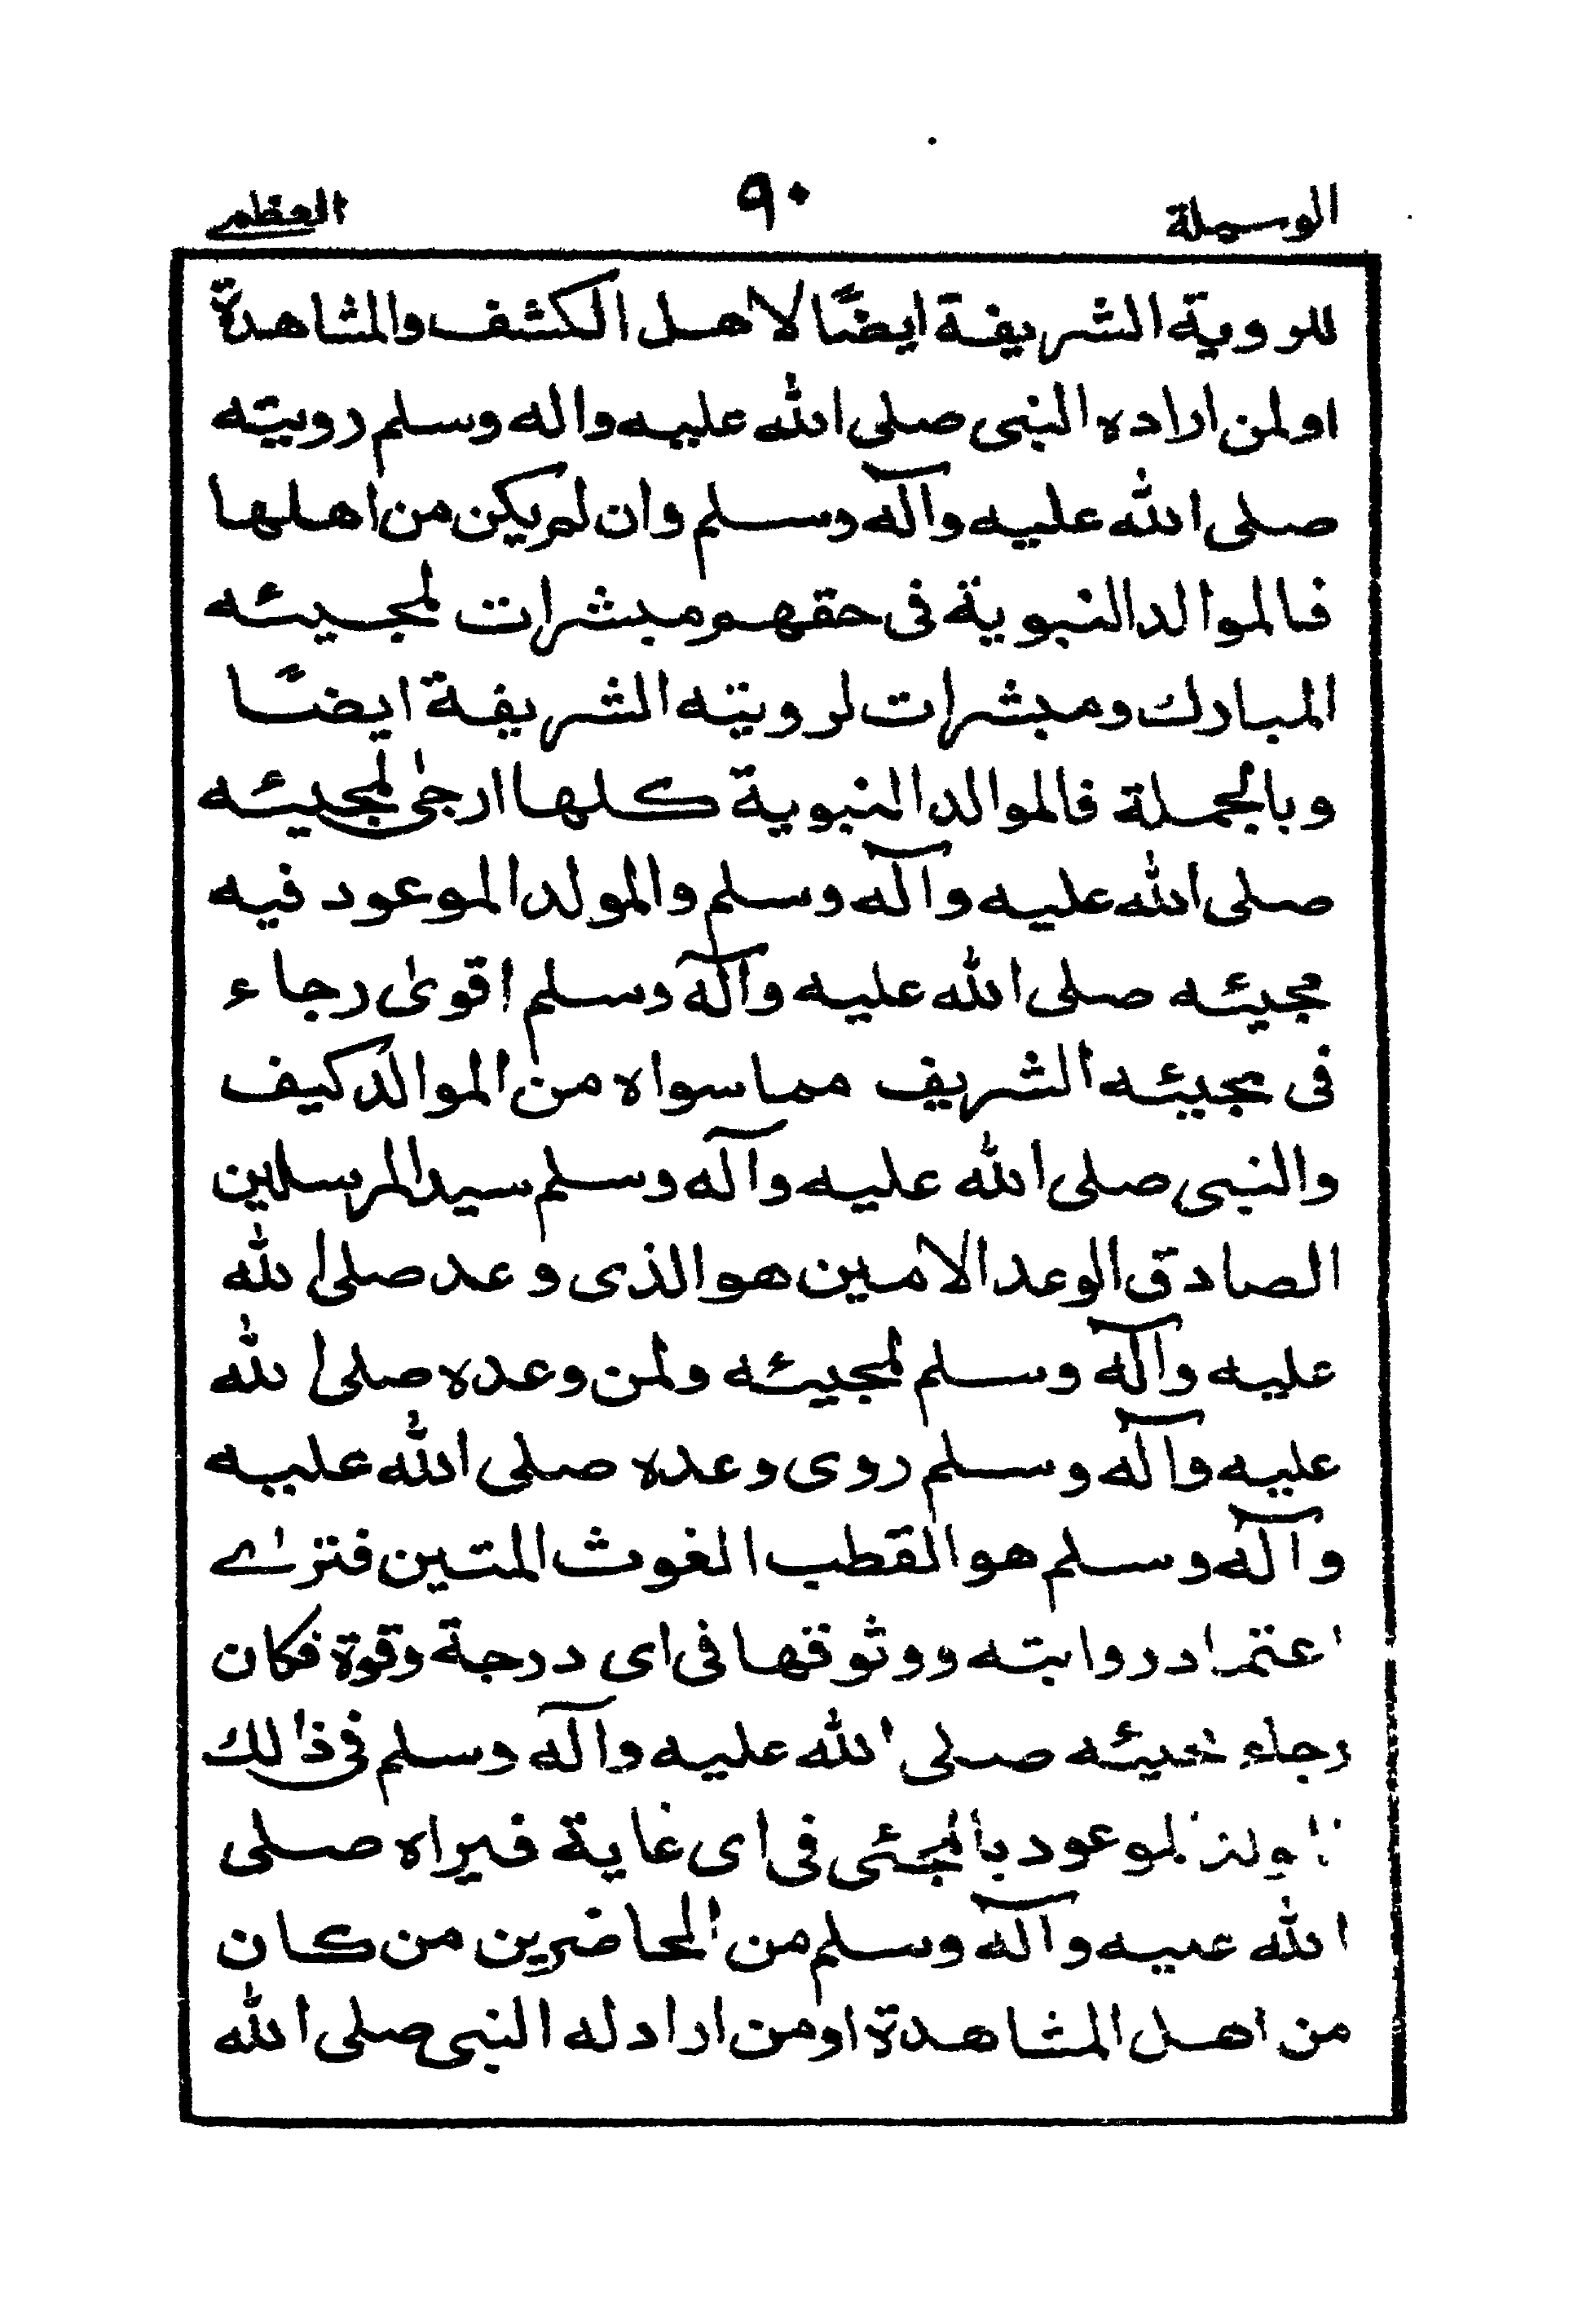 الوسيلة ٩٠ العظمى
للروية الشريفة ايضًا لاهل الكشف والمشاهدة
اولمن اراده النبى صلى الله عليه واله وسلم رويته
صلى الله عليه وآله وسلم وان لم يكن من اهلها
فالموالد النبوية فى حقهم مبشرات لمجيئه
المبارك ومبشرات لرويته الشريفة ايضًا
وبالجملة فالموالد النبوية كلها ارجىٰ لمجيئه
صلى الله عليه وآله وسلم والمولد الموعود فيه
مجيئه صلى الله عليه وآله وسلم اقوىٰ رجاء
فى مجيئه الشريف مما سواه من الموالد كيف
والنبى صلى الله عليه وآله وسلم سيد المرسلين
الصادق الوعد الامين هو الذى وعد صلى الله
عليه وآله وسلم لمجيئه ولمن وعده صلى الله
عليه وآله وسلم روى وعده صلى الله عليه
وآله وسلم هو القطب الغوث المتين فترىٰ
اعتماد روايته ووثوقها فى اى درجة وقوة فكان
رجاء مجيئه صلى الله عليه وآله وسلم فى ذالك
المولد الموعود بالمجئى فى اى غاية فيراه صلى
الله عليه وآله وسلم من الحاضرين من كان
من اهل المشاهدة اومن اراد له النبى صلى الله